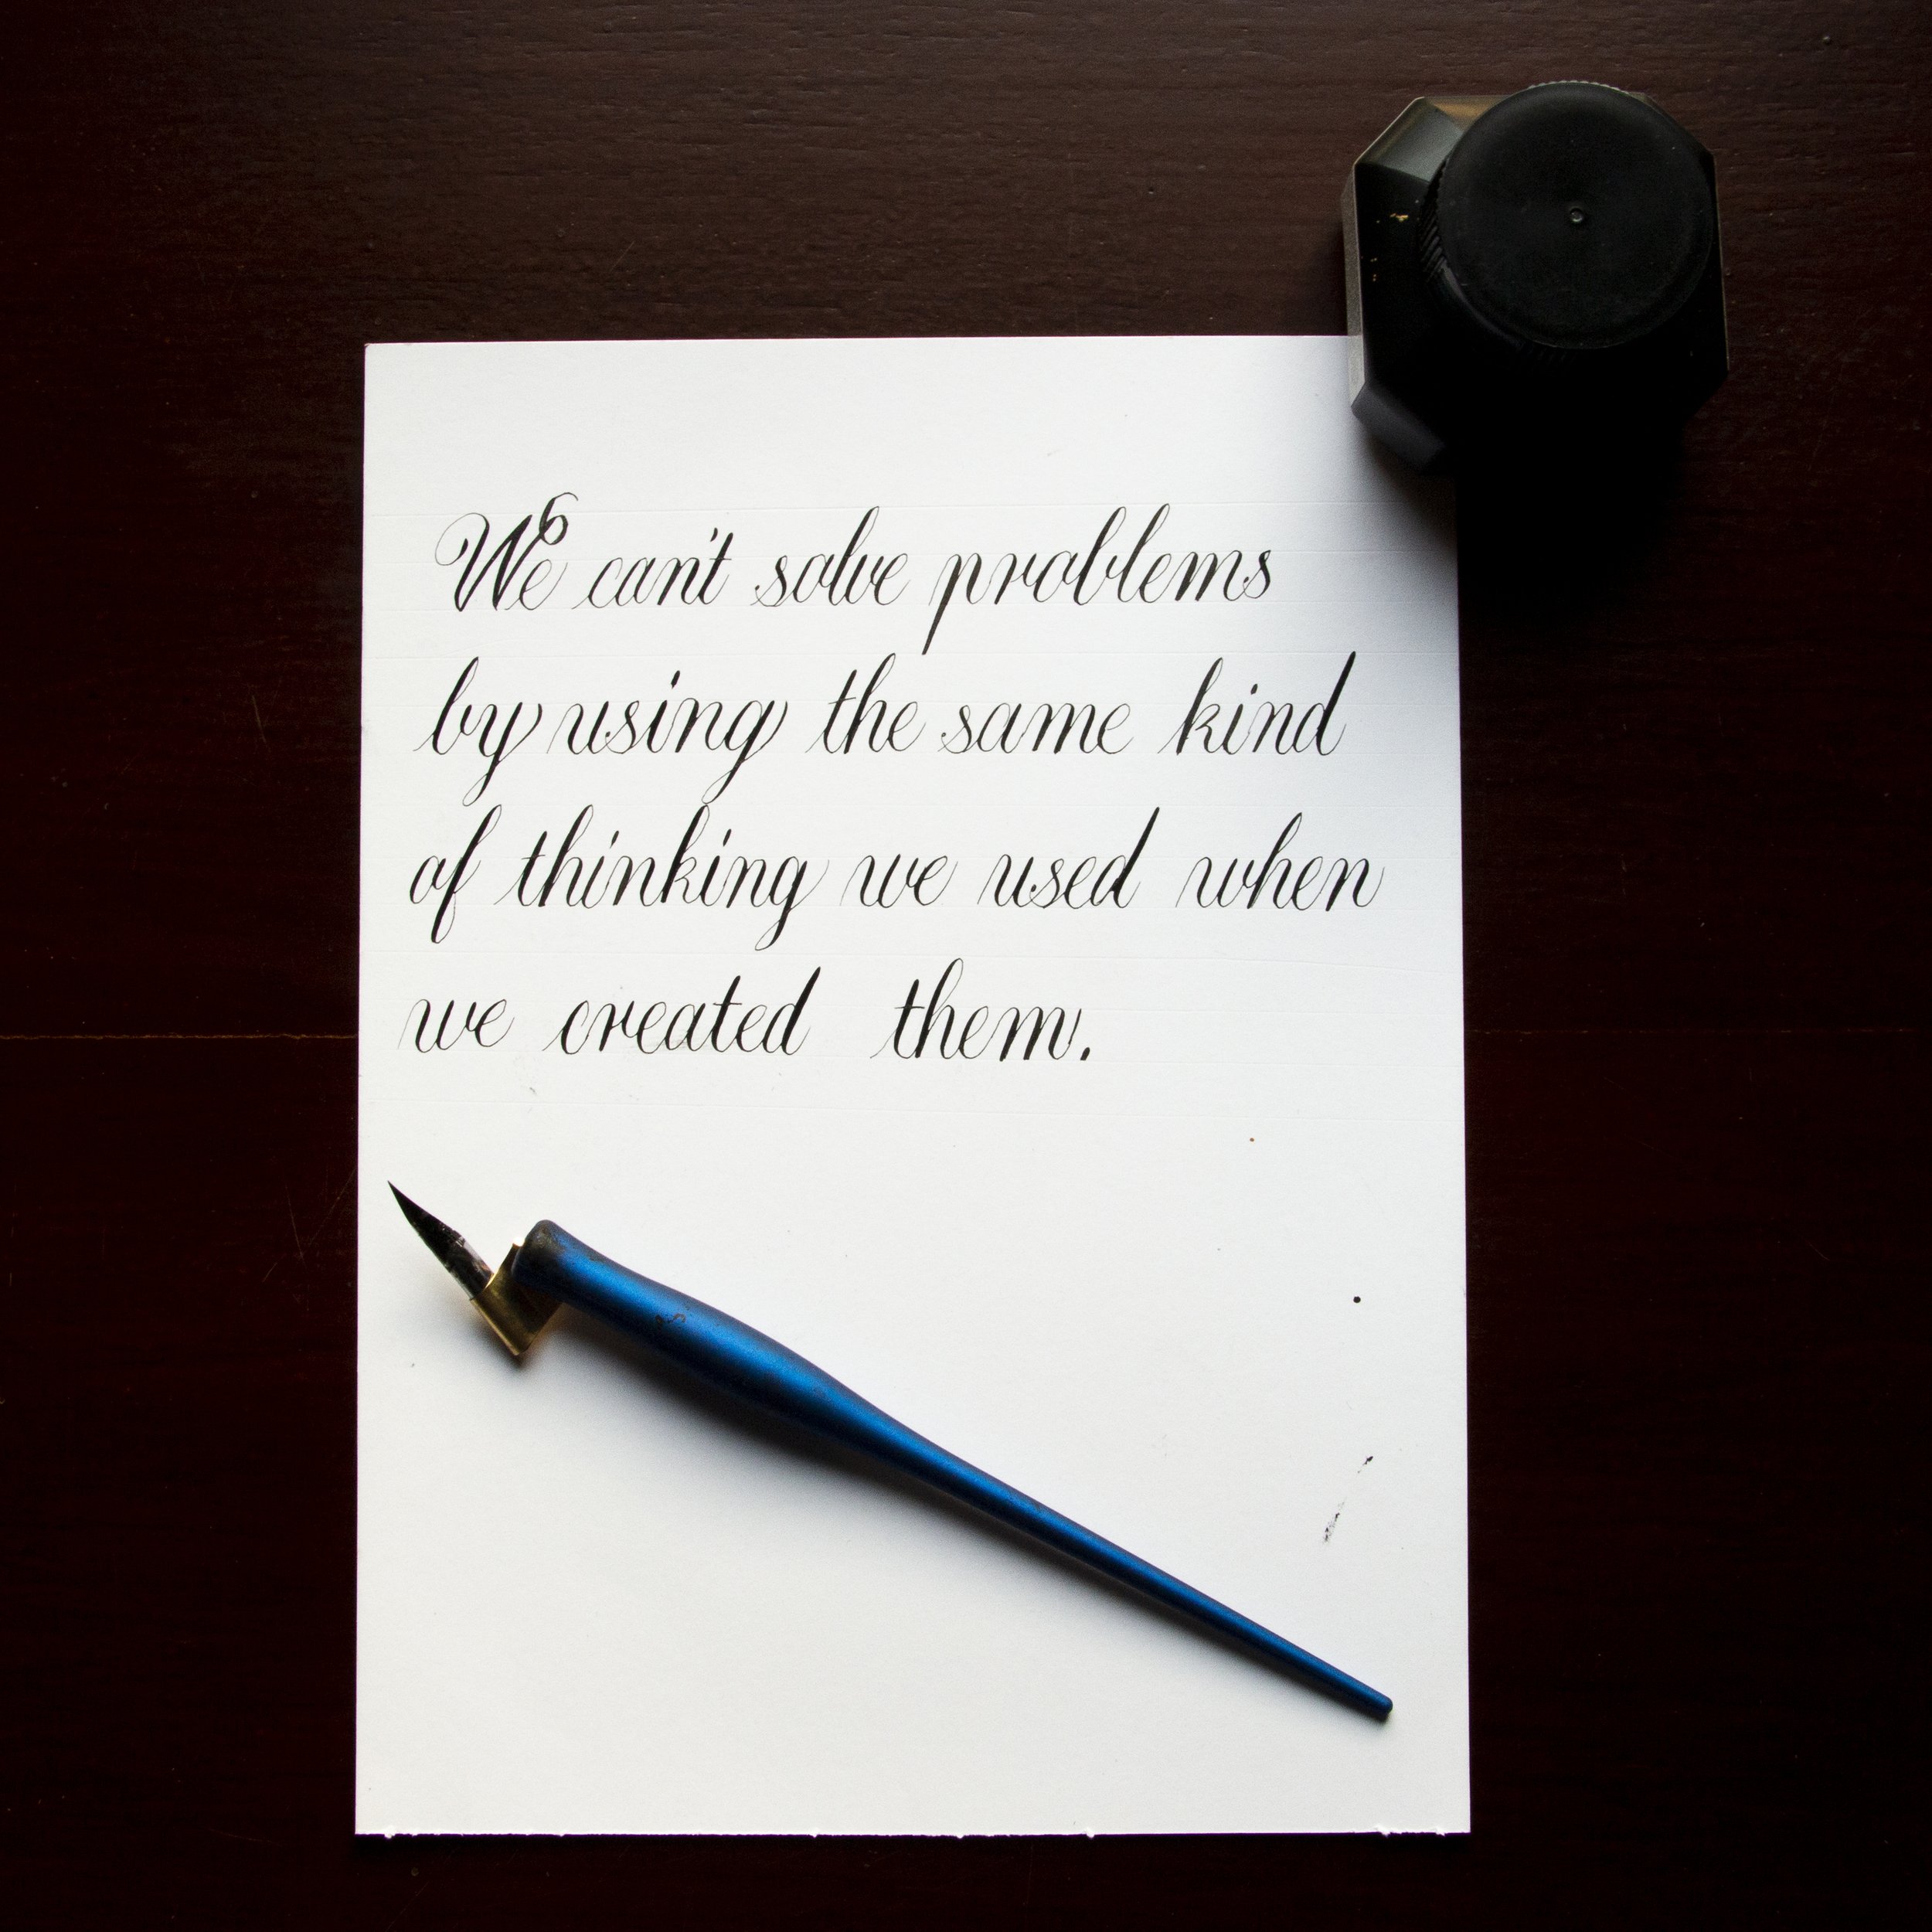 We can't solve problems
by using the same kind
of thinking we used when
we created them.